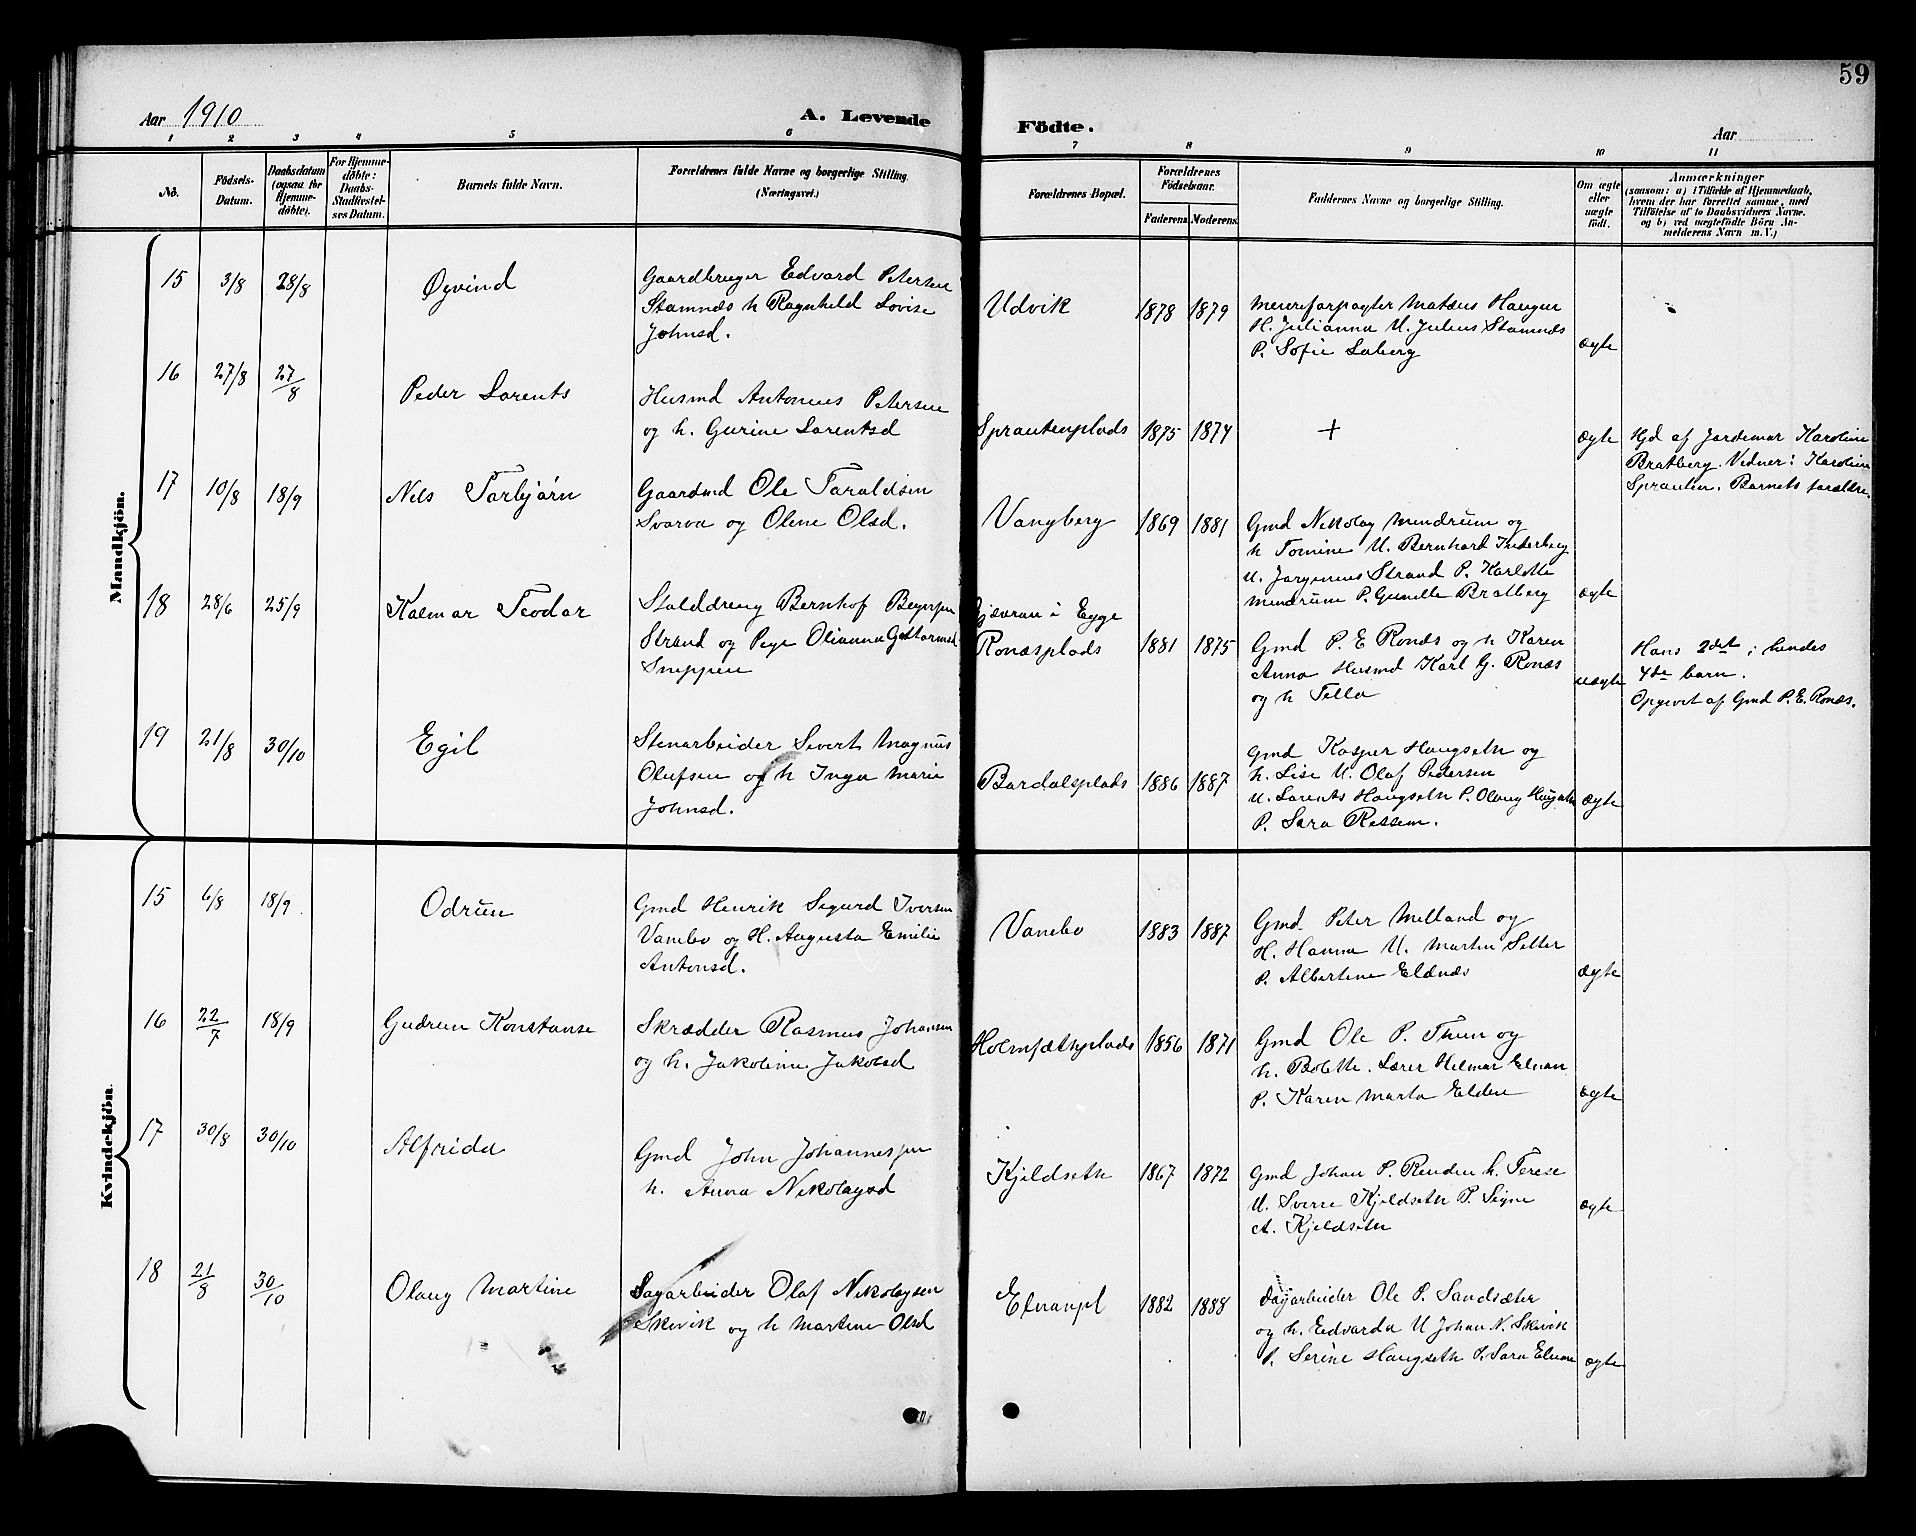 59
Aar 1910
A. Levende
Födte.
Aar
1 2 3 4 5 6 7 8 9 10 11
No.
Födsels-Datum.
Daabsdatum (ogsaa for Hjemmedöbte).
For Hjemmedöbte: Daabs-Stadfæstelses Datum.
Barnets fulde Navn.
Forældrenes fulde Navne og borgerlige Stilling. (Næringsvei.)
Forældrenes Bopæl.
Forældrenes Födselsaar.
Faderens. Moderens.
Faddernes Navne og borgerlige Stilling.
Om ægte eller uægte födt.
Anmærkninger
(saasom: a) i Tilfælde af Hjemmedaab,
hvem der har forrettet samme, med
Tilföielse af to Daabsvidners Navne.
og b) ved uægtefödte Börn An-
melderens Navn m. V.)
Mandkjön.
15 3/8 28/8 Øyvind
Gaardbruger Edvard Petersen
Stamnæs h Ragnhild Lovise
Johnsd.
Udvik 1878 1879
Meieriforpagter Matæus Haugan
H. Julianna U. Julius Stamnæs
P. Sofie Laberg
ægte
16 27/8 27/8 Peder Lorents
Husmd Antonius Petersen
og h. Gurine Lorentsd
Sprautenplads 1875 1874 + ægte
Hjd af Jordemor Karoline
Bratberg. Vidner: Karoline
Sprauten. Barnets forældre.
17 10/8 18/9 Nels Torbjørn
Gaardmd Ole Taraldsen
Svarva og Oline Olsd.
Vangberg 1869 1881
Gmd Nikolay Mendrum og
h Tomine U. Bernhard Inderberg
U. Jørgenius Strand P. Karlotte
Mendrum P. Gunelle Bratberg
ægte
18 28/6 25/9 Kalmar Teodor
Stalddreng Bernhof Beyerssen
Strand og Pige Olianna Guttormsd
Sneppen
Gjævran i Egge
Ronæsplads 1881 1875
Gmd P. E Ronæs og h Karen
Anna Husmd Karl G. Ronæs
og h Tella
uægte
Hans 2det; hendes
4de barn.
Opgivet af Gmd P. E. Ronæs.
19 21/8 30/10 Egil
Stenarbeider Sivert Magnus
Olufsen og h Inga Marie
Johnsd.
Bardalsplads 1886 1887
Gmd Kasper Haugseth og
h. Lise U. Olaf Pedersen
U. Lorents Haugseth P. Olaug Haugseth
P. Sara Ressem.
ægte
Kvindekjön.
15 6/8 18/9 Odrun
Gmd Henrik Sigurd Iversen
Vanebo og H. Augusta Emilie
Antonsd.
Vanebo 1883 1887
Gmd Peter Melland og
H. Hanna U. Martin Selter
P. Albertine Eldnæs
ægte
16 22/7 18/9 Gudrun Konstanse
Skrædder Rasmus Johansen
og h. Jakoline Jakobsd
Holmsethplads 1856 1871
Gmd Ole P. Thun og
h. Bolette. Lærer Helmar Elnan
P. Karen Marta Elden
ægte
17 30/8 30/10 Alfrida
Gmd John Johannessen
h. Anna Nikolaysd
Kjeldseth 1867 1872
Gmd Johan P. Renden h. Terese
U. Sverre Kjeldseth P. Signe
A. Kjeldseth
ægte
18 21/8 30/10 Olaug Martine
Sagarbeider Olaf Nikolaysen
Skevik og h Martine Olsd
Elnanpl 1882 1888
Sagarbeider Ole P. Sandsæter
og h. Edvarda U Johan N. Skevik
P. Serine Haugseth P. Sara Elnan
ægte